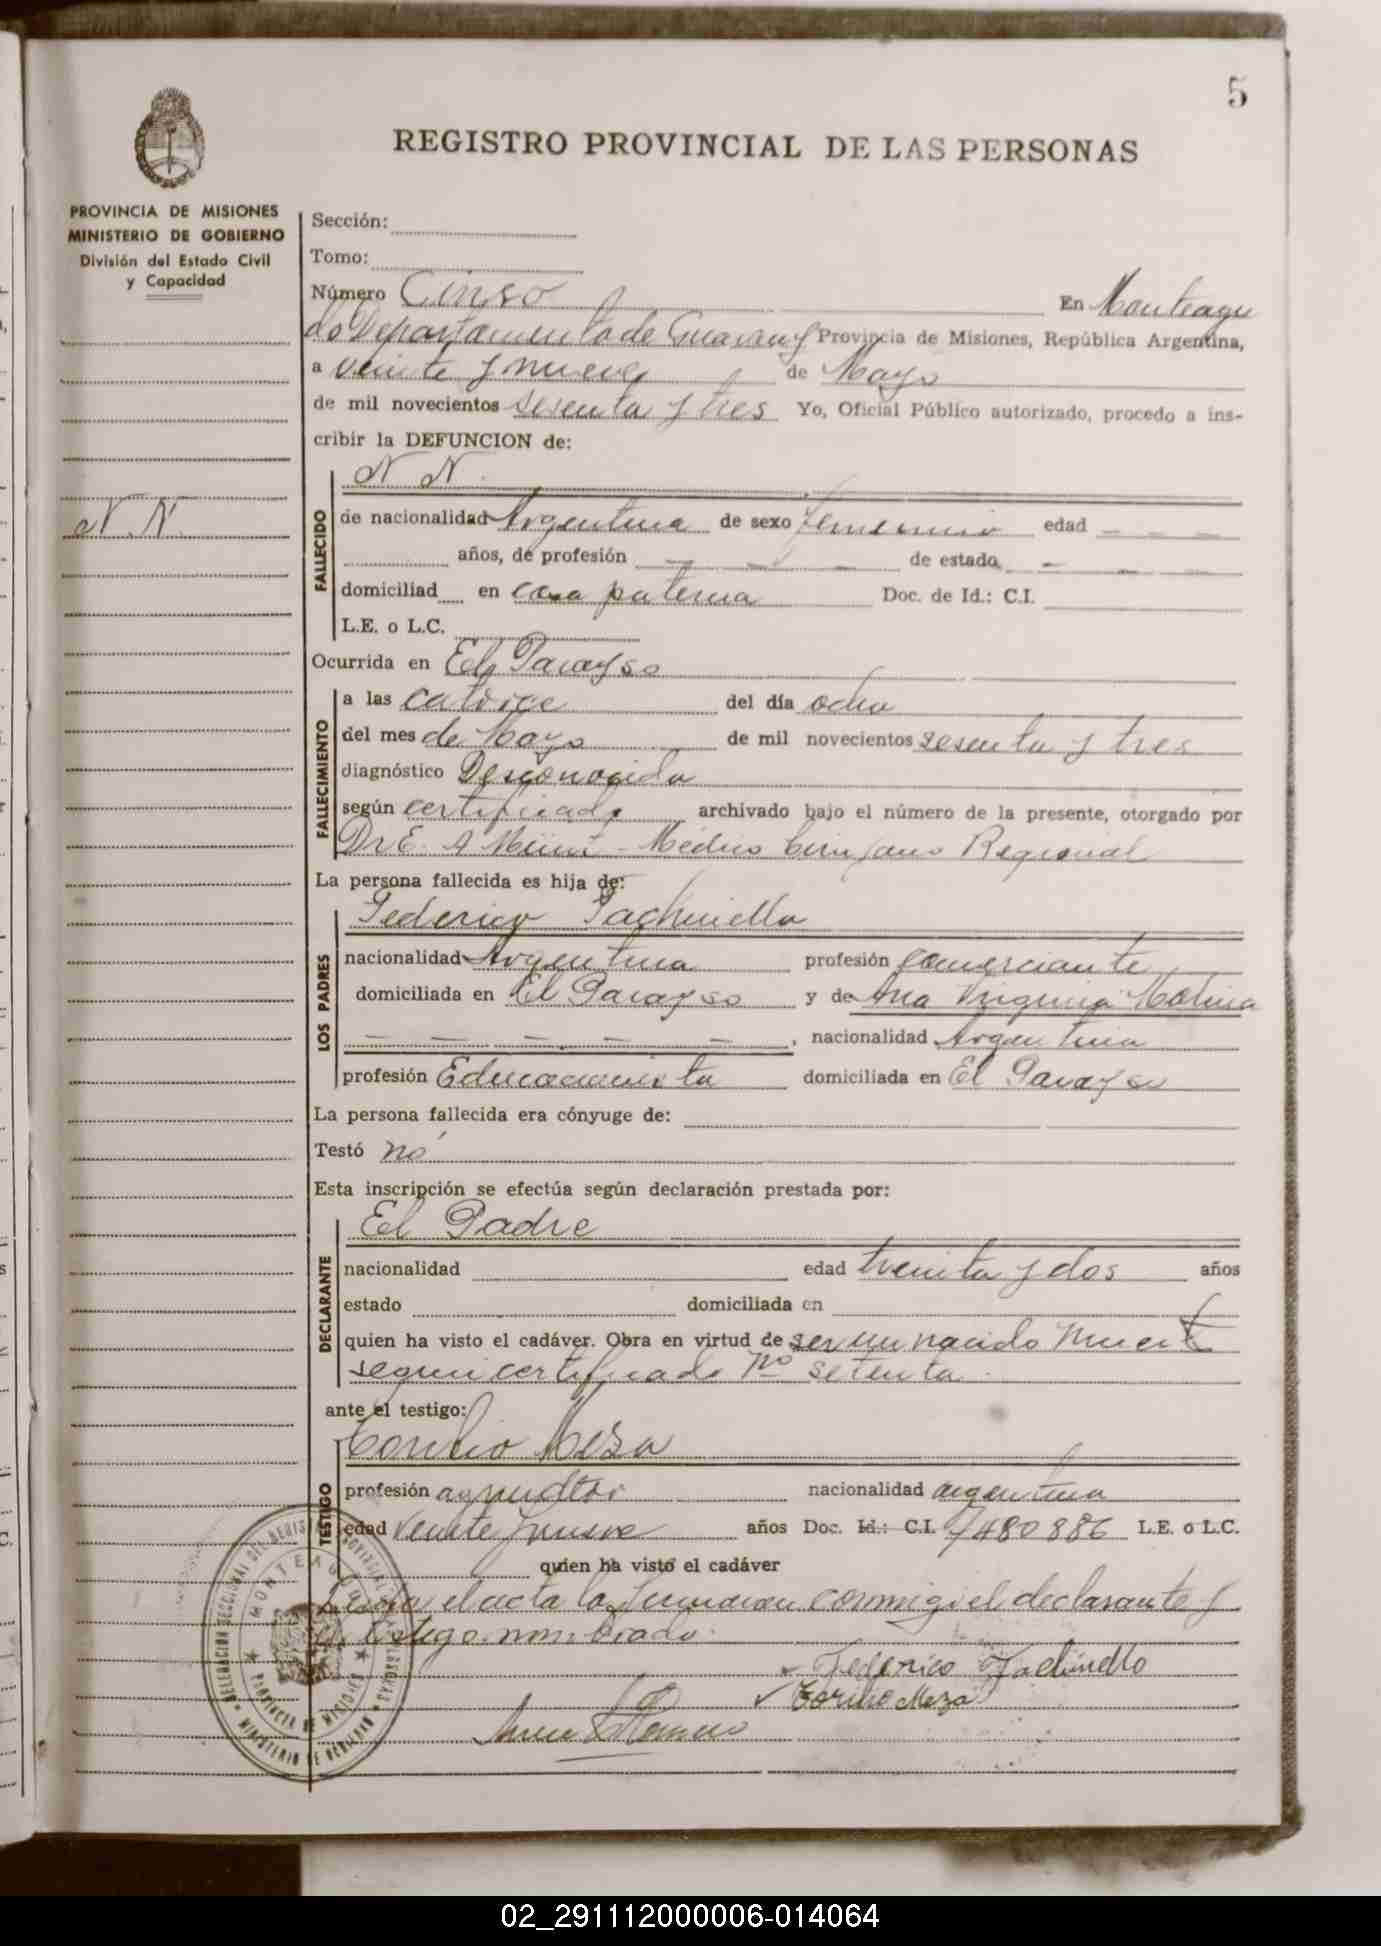 5
REGISTRO PROVINCIAL DE LAS PERSONAS
PROVINCIA DE MISIONES
MINISTERIO DE GOBIERNO
División del Estado Civil
y Capacidad
N.N.
Sección:
Tomo:
Número Cinco En Monteagu
do Departamento de Guarany Provincia de Misiones, República Argentina,
a veinte y nueve de Mayo
de mil novecientos sesenta y tres Yo, Oficial Público autorizado, procedo a ins-
cribir la DEFUNCION de:
N N.
FALLECIDO
de nacionalidad Argentina de sexo femenino edad — — —
años, de profesión — — — de estado — — —
domiciliad en casa paterna Doc. de Id.: C.I.
L.E. o L.C.
Ocurrida en El Parayso
FALLECIMIENTO
a las catorce del día ocho
del mes de Mayo de mil novecientos sesenta y tres
diagnóstico Desconocida
según certificado archivado bajo el número de la presente, otorgado por
Dr E. A - Médico Cirujano Regional
La persona fallecida es hija de:
LOS PADRES
Federico Tachinello
nacionalidad Argentina profesión comerciante
domiciliada en El Parayso y de Ana Virginia Molina
— — — — —, nacionalidad Argentina
profesión Educacionista domiciliada en El Parayso
La persona fallecida era cónyuge de:
Testó no
Esta inscripción se efectúa según declaración prestada por:
DECLARANTE
El Padre
nacionalidad edad treinta y dos años
estado domiciliada en
quien ha visto el cadáver. Obra en virtud de ser un nacido muert
segun certificado Nº setenta.
ante el testigo:
TESTIGO
Toribio Meza
profesión agricultor nacionalidad argentina
edad veinte y nueve años Doc. Id.: C.I. 7480886 L.E. o L.C.
quien ha visto el cadáver
Leida el acta la firmaran conmigo el declarante y
el testigo nombrado.
Federico Tachinello
Toribio Meza
DELEGACION SECCIONAL DEL REGISTRO PROVINCIAL DE LAS PERSONAS
MONTEAGUDO
PROVINCIA DE MISIONES
MINISTERIO DE GOBIERNO
02_291112000006-014064